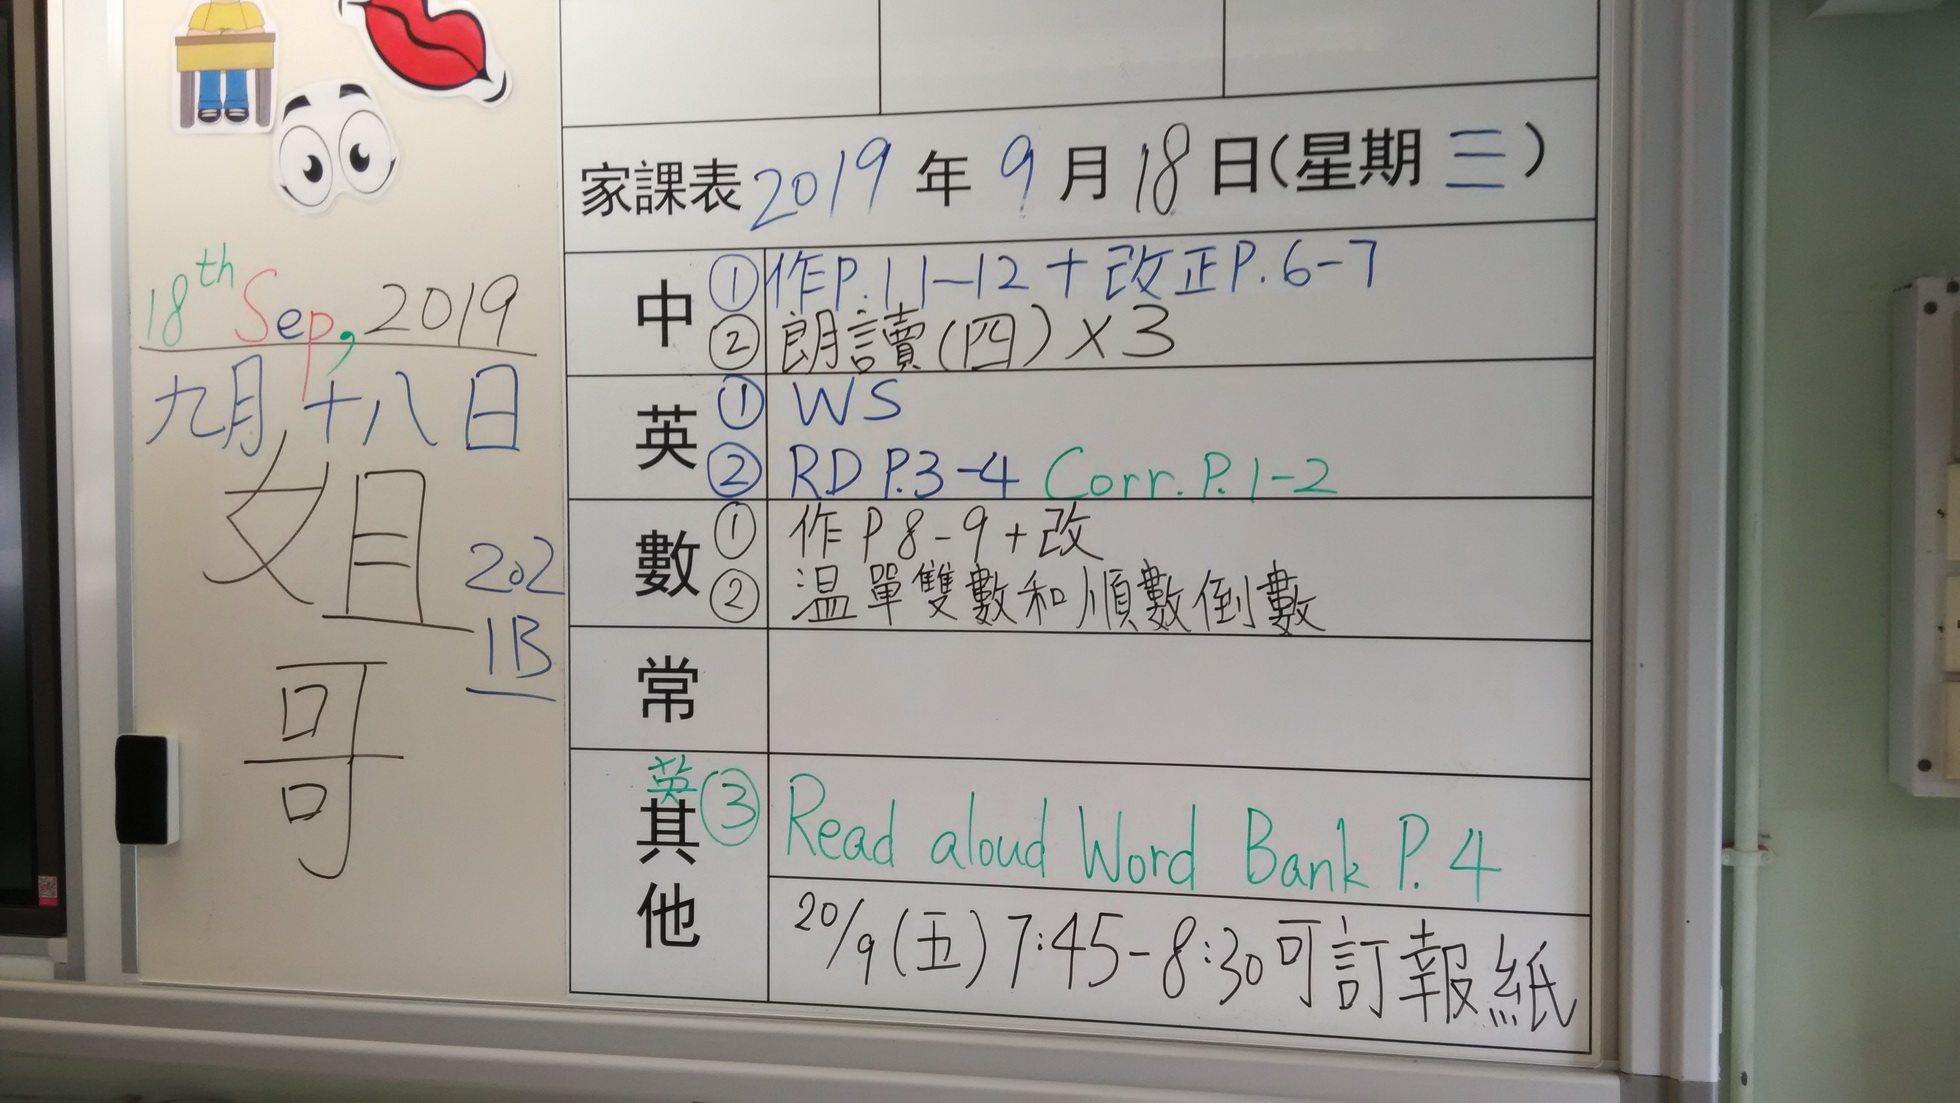 18th Sep, 2019
九月十八日
姐
202
1B
哥
家課表 2019 年 9 月 18 日(星期 三)
中 ① 作P.11-12 + 改正P.6-7
② 朗讀(四) x 3
英 ① WS
② RD P.3-4 Corr. P.1-2
數 ① 作 P 8-9 + 改
② 温單雙數和順數倒數
常
其他 英 ③ Read aloud Word Bank P. 4
20/9 (五) 7:45-8:30可訂報紙